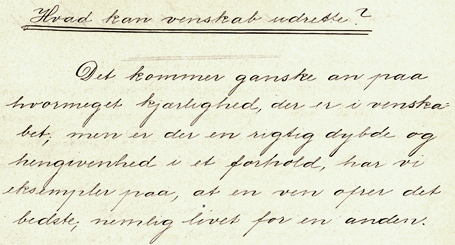 Hvad kan venskab udrette?
Det kommer ganske an paa
hvormeget kjærlighed, der er i venska-
bet; men er der en rigtig dybde og
hengivenhed i et forhold, har vi
eksempler paa, at en ven ofrer det
bedste, nemlig livet for en anden.